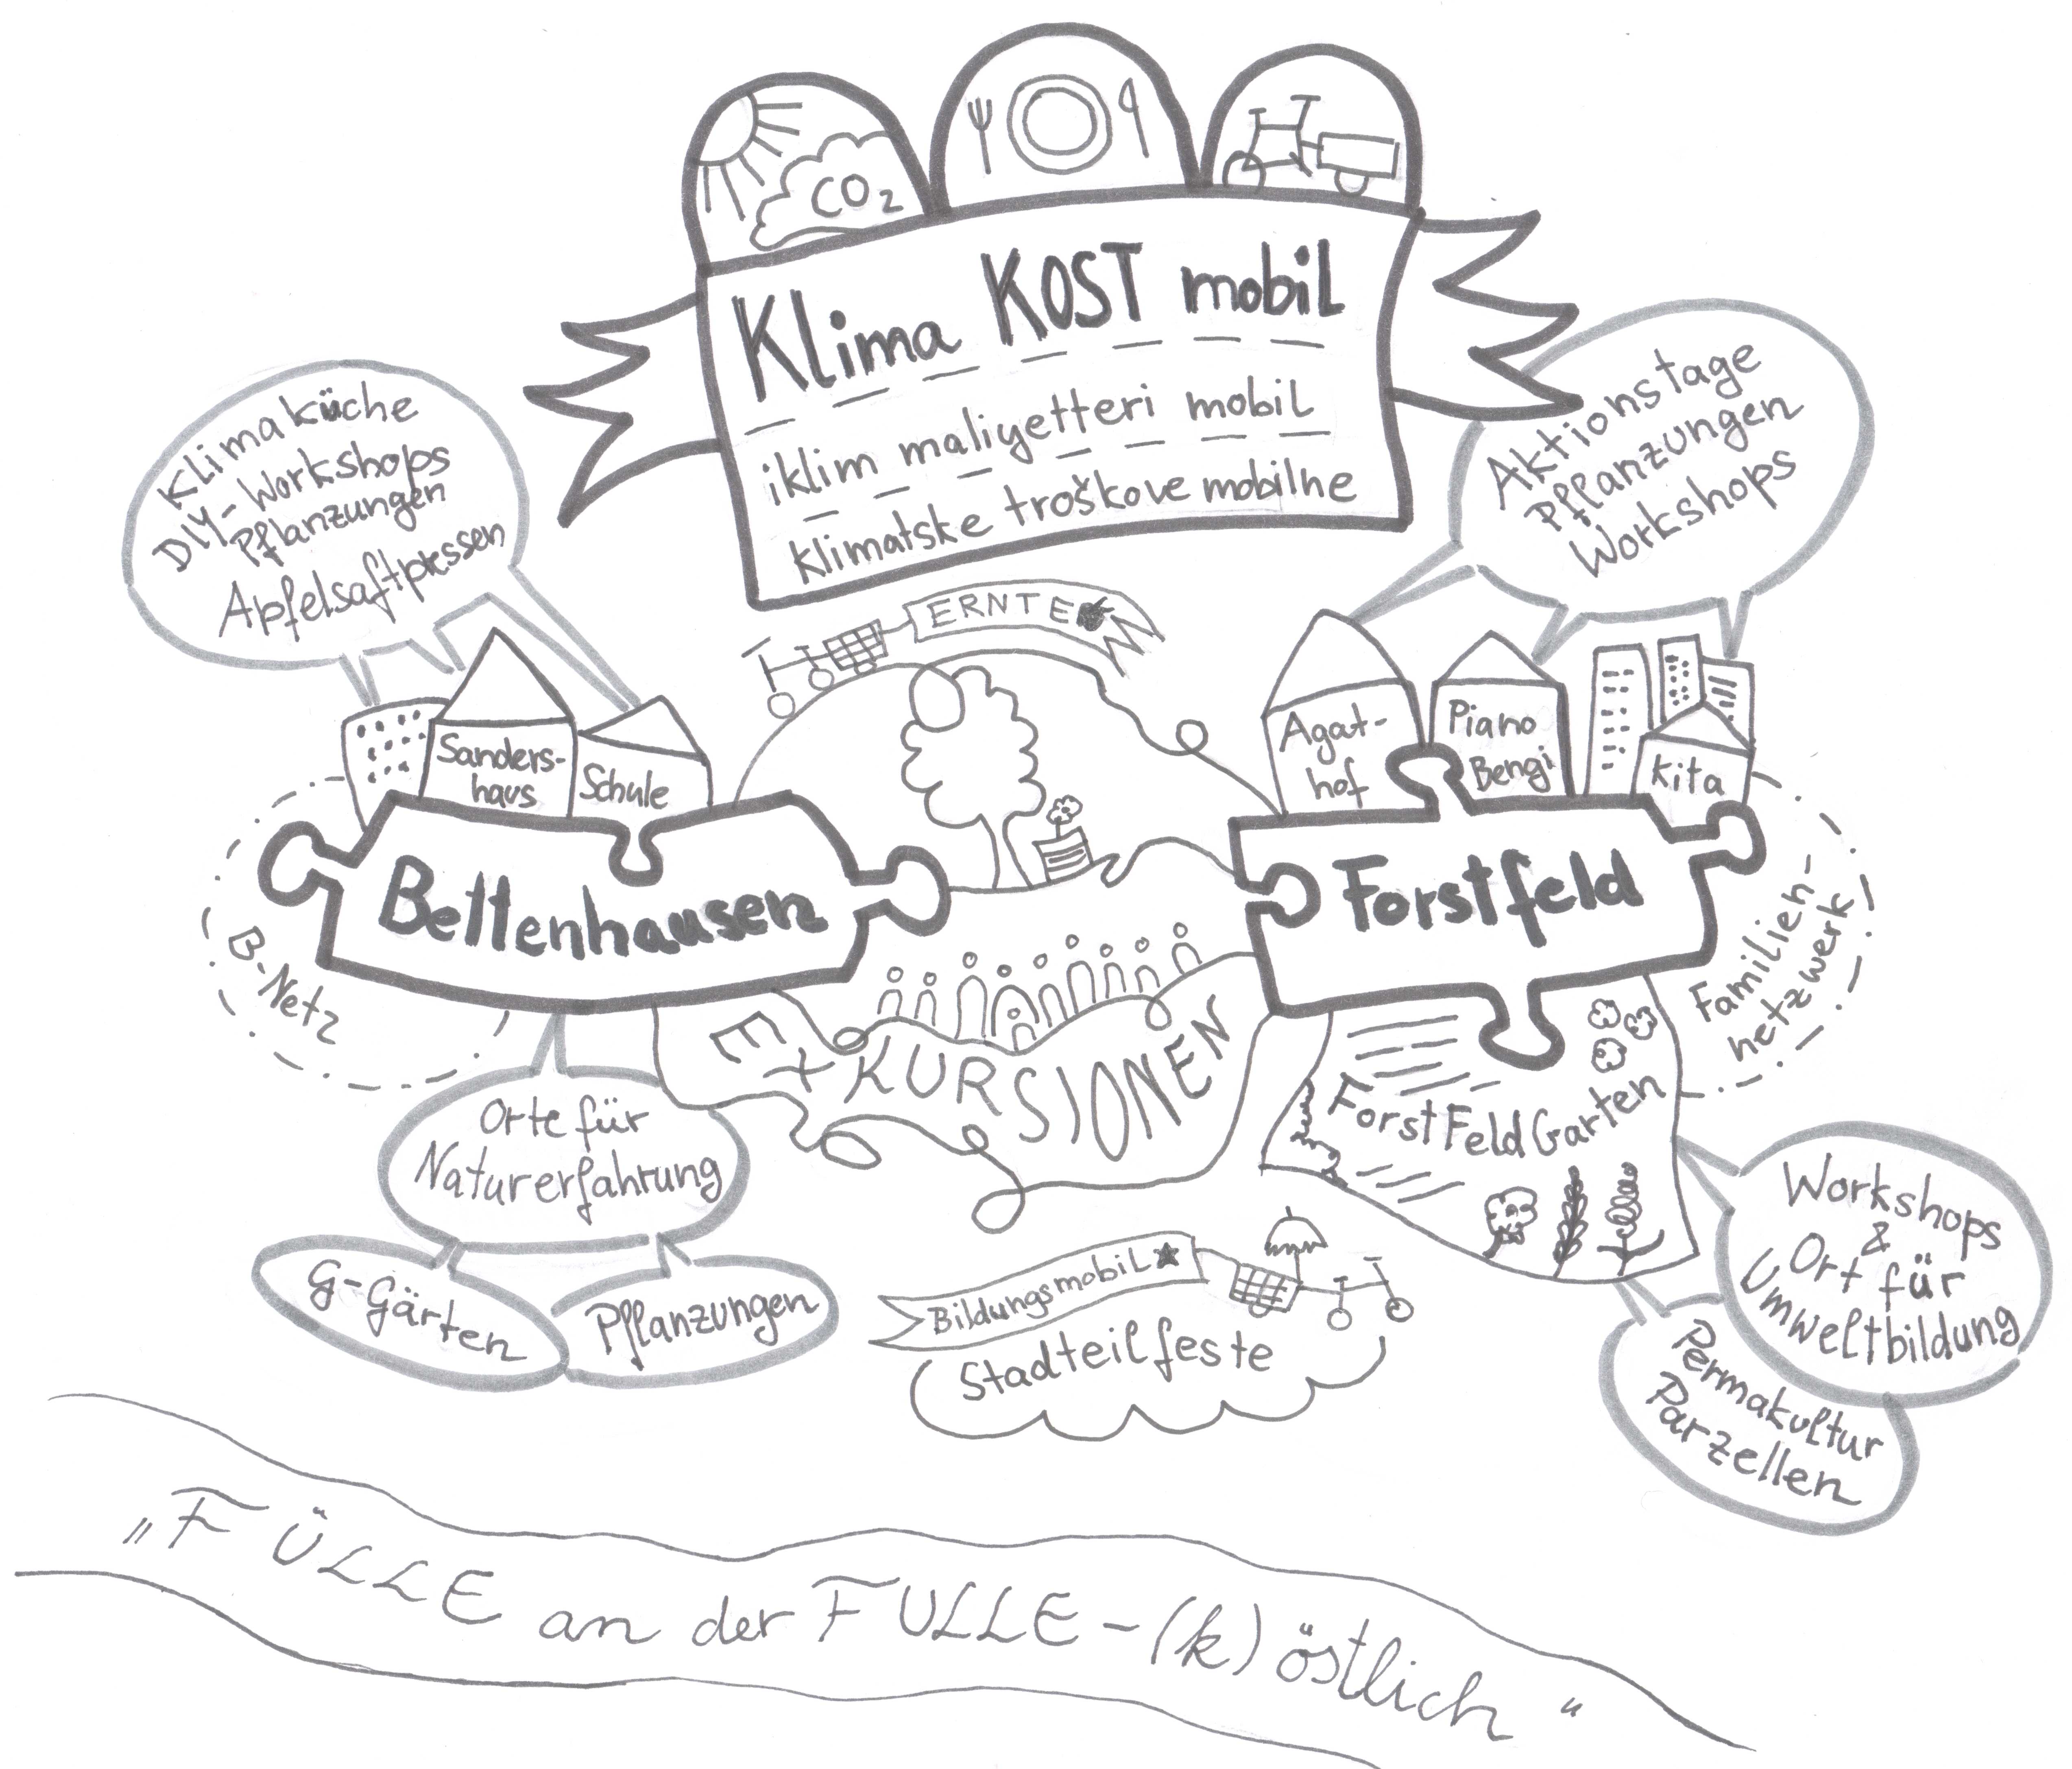 CO2
Klima KOST mobil
iklim maliyetteri mobil
klimatske troškove mobilne
Klimaküche
DIY-Workshops
Pflanzungen
Apfelsaftpressen
Aktionstage
Pflanzungen
Workshops
ERNTE
Sanders-
haus
Schule
Agat-
hof
Piano
Bengi
Kita
Bettenhausen
Forstfeld
B-Netz
Familien-
netzwerk
EXKURSIONEN
ForstFeldGarten
Orte für
Naturerfahrung
G-Gärten
Pflanzungen
Workshops
&
Ort für
Umweltbildung
Permakultur
Parzellen
Bildungsmobil
Stadtteilfeste
„FÜLLE an der FULLE-(k)östlich“